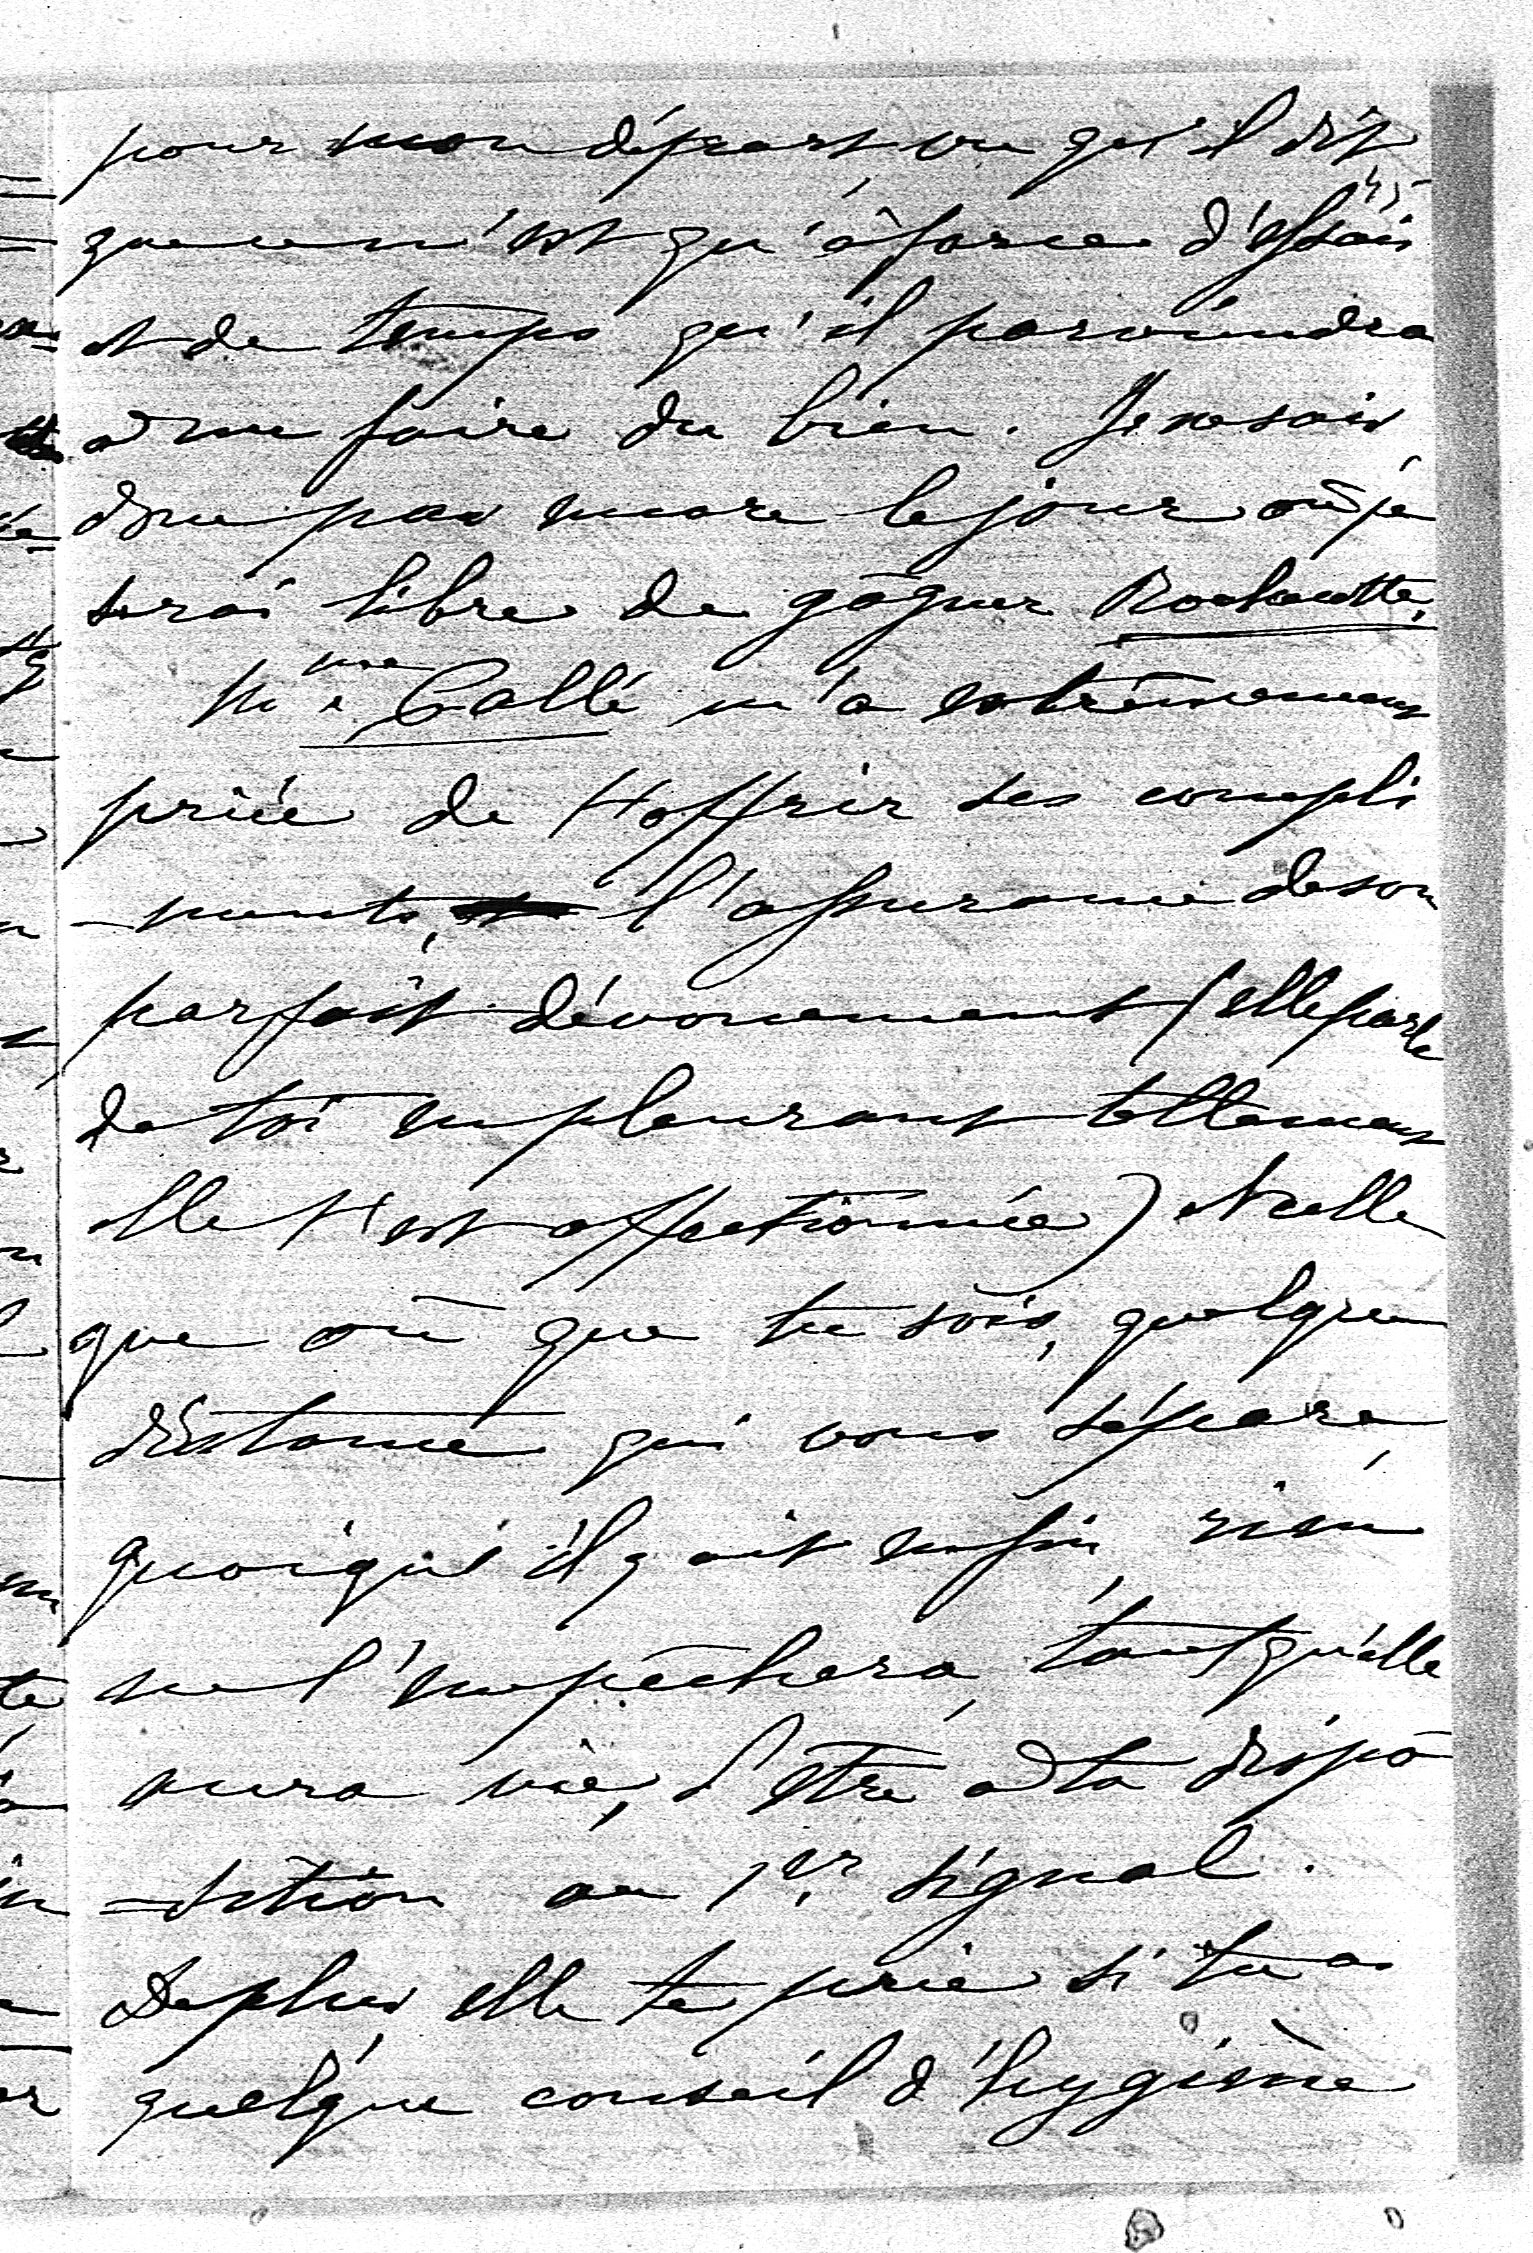 pour mon départ, vu qu'il dit
que ce n'est qu'à force d'essais
et de temps qu'il parviendra
à me faire du bien. Je ne sais
donc pas encore le jour où je
serai libre de gâgner Rochecotte.
Mme Callé m'a extrêmement
priée de t'offrir ses compli
-ments, l'assurance de son
parfait dévouement (elle parle
de toi en pleurant tellement
elle t'est affectionnée) et celle
que où que tu sois, quelque
distance qui vous sépare,
quoiqu'il y ait enfin, rien
ne l'empêchera, tant qu'elle
aura vie, d'être à ta dispo
=sition au 1er signal.
De plus, elle te prie si tu as
quelque conseil d'hygiène